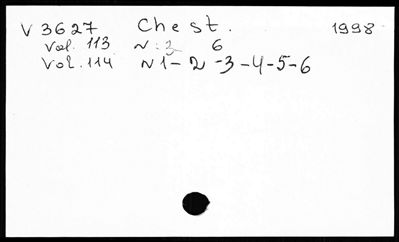 V 3627 Chest. 1998
Vol. 113 N: 3 6
Vol. 114 N 1-2-3-4-5-6